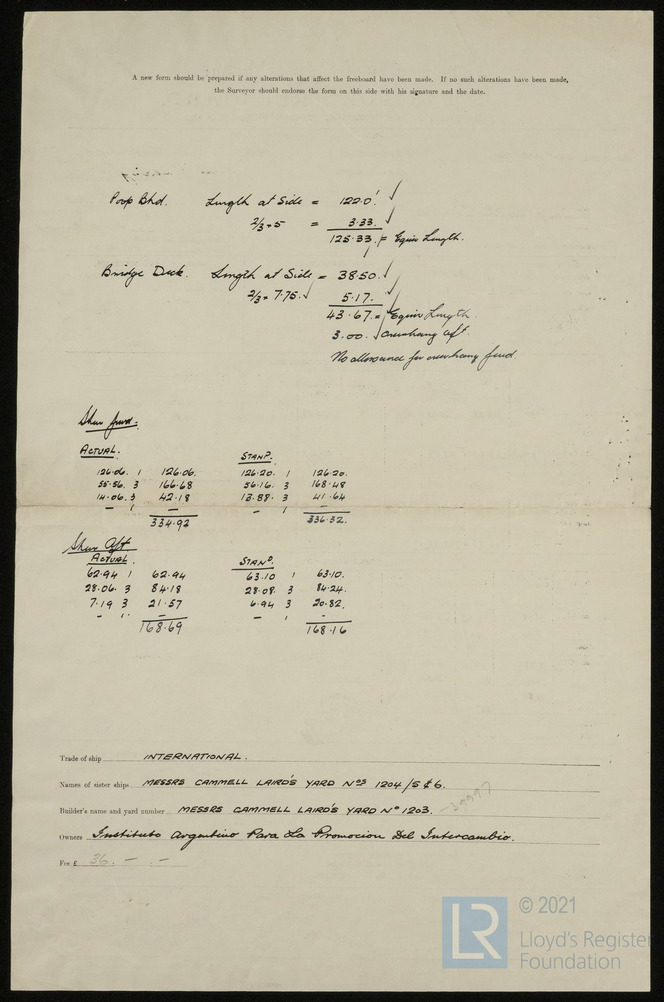 A new form should be prepared if any alterations that affect the freeboard have been made. If no such alterations have been made,
the Surveyor should endorse the form on this side with his signature and the date.
Poop Bhd. Length at Side = 122.0'
2/3 × 5 = 3.33.
125.33. = Equiv Length.
Bridge Deck. Length at Side = 38.50.
2/3 × 7.75. 5.17.
43.67. = Equiv Length.
3.00. overhang aft.
No allowance for overhang fwd.
Sheer fwd:
ACTUAL. STAND.
126.06. 1 126.06. 126.20. 1 126.20.
55.56. 3 166.68 56.16. 3 168.48
14.06. 3 42.18 13.88. 3 41.64
- 1 - - 1 -
334.92 336.32.
Sheer Aft
ACTUAL. STAND.
62.94 1 62.94 63.10 1 63.10.
28.06. 3 84.18 28.08. 3 84.24.
7.19 3 21.57 6.94 3 20.82.
- 1. - - 1 -
168.69 168.16
Trade of ship INTERNATIONAL.
Names of sister ships MESSRS CAMMELL LAIRD'S YARD Nos 1204/5 & 6.
Builder's name and yard number MESSRS CAMMELL LAIRD'S YARD No 1203.
Owners Instituto Argentino Para La Promocion Del Intercambio.
Fee £ 36. - . -
LR
© 2021
Lloyd's Register
Foundation